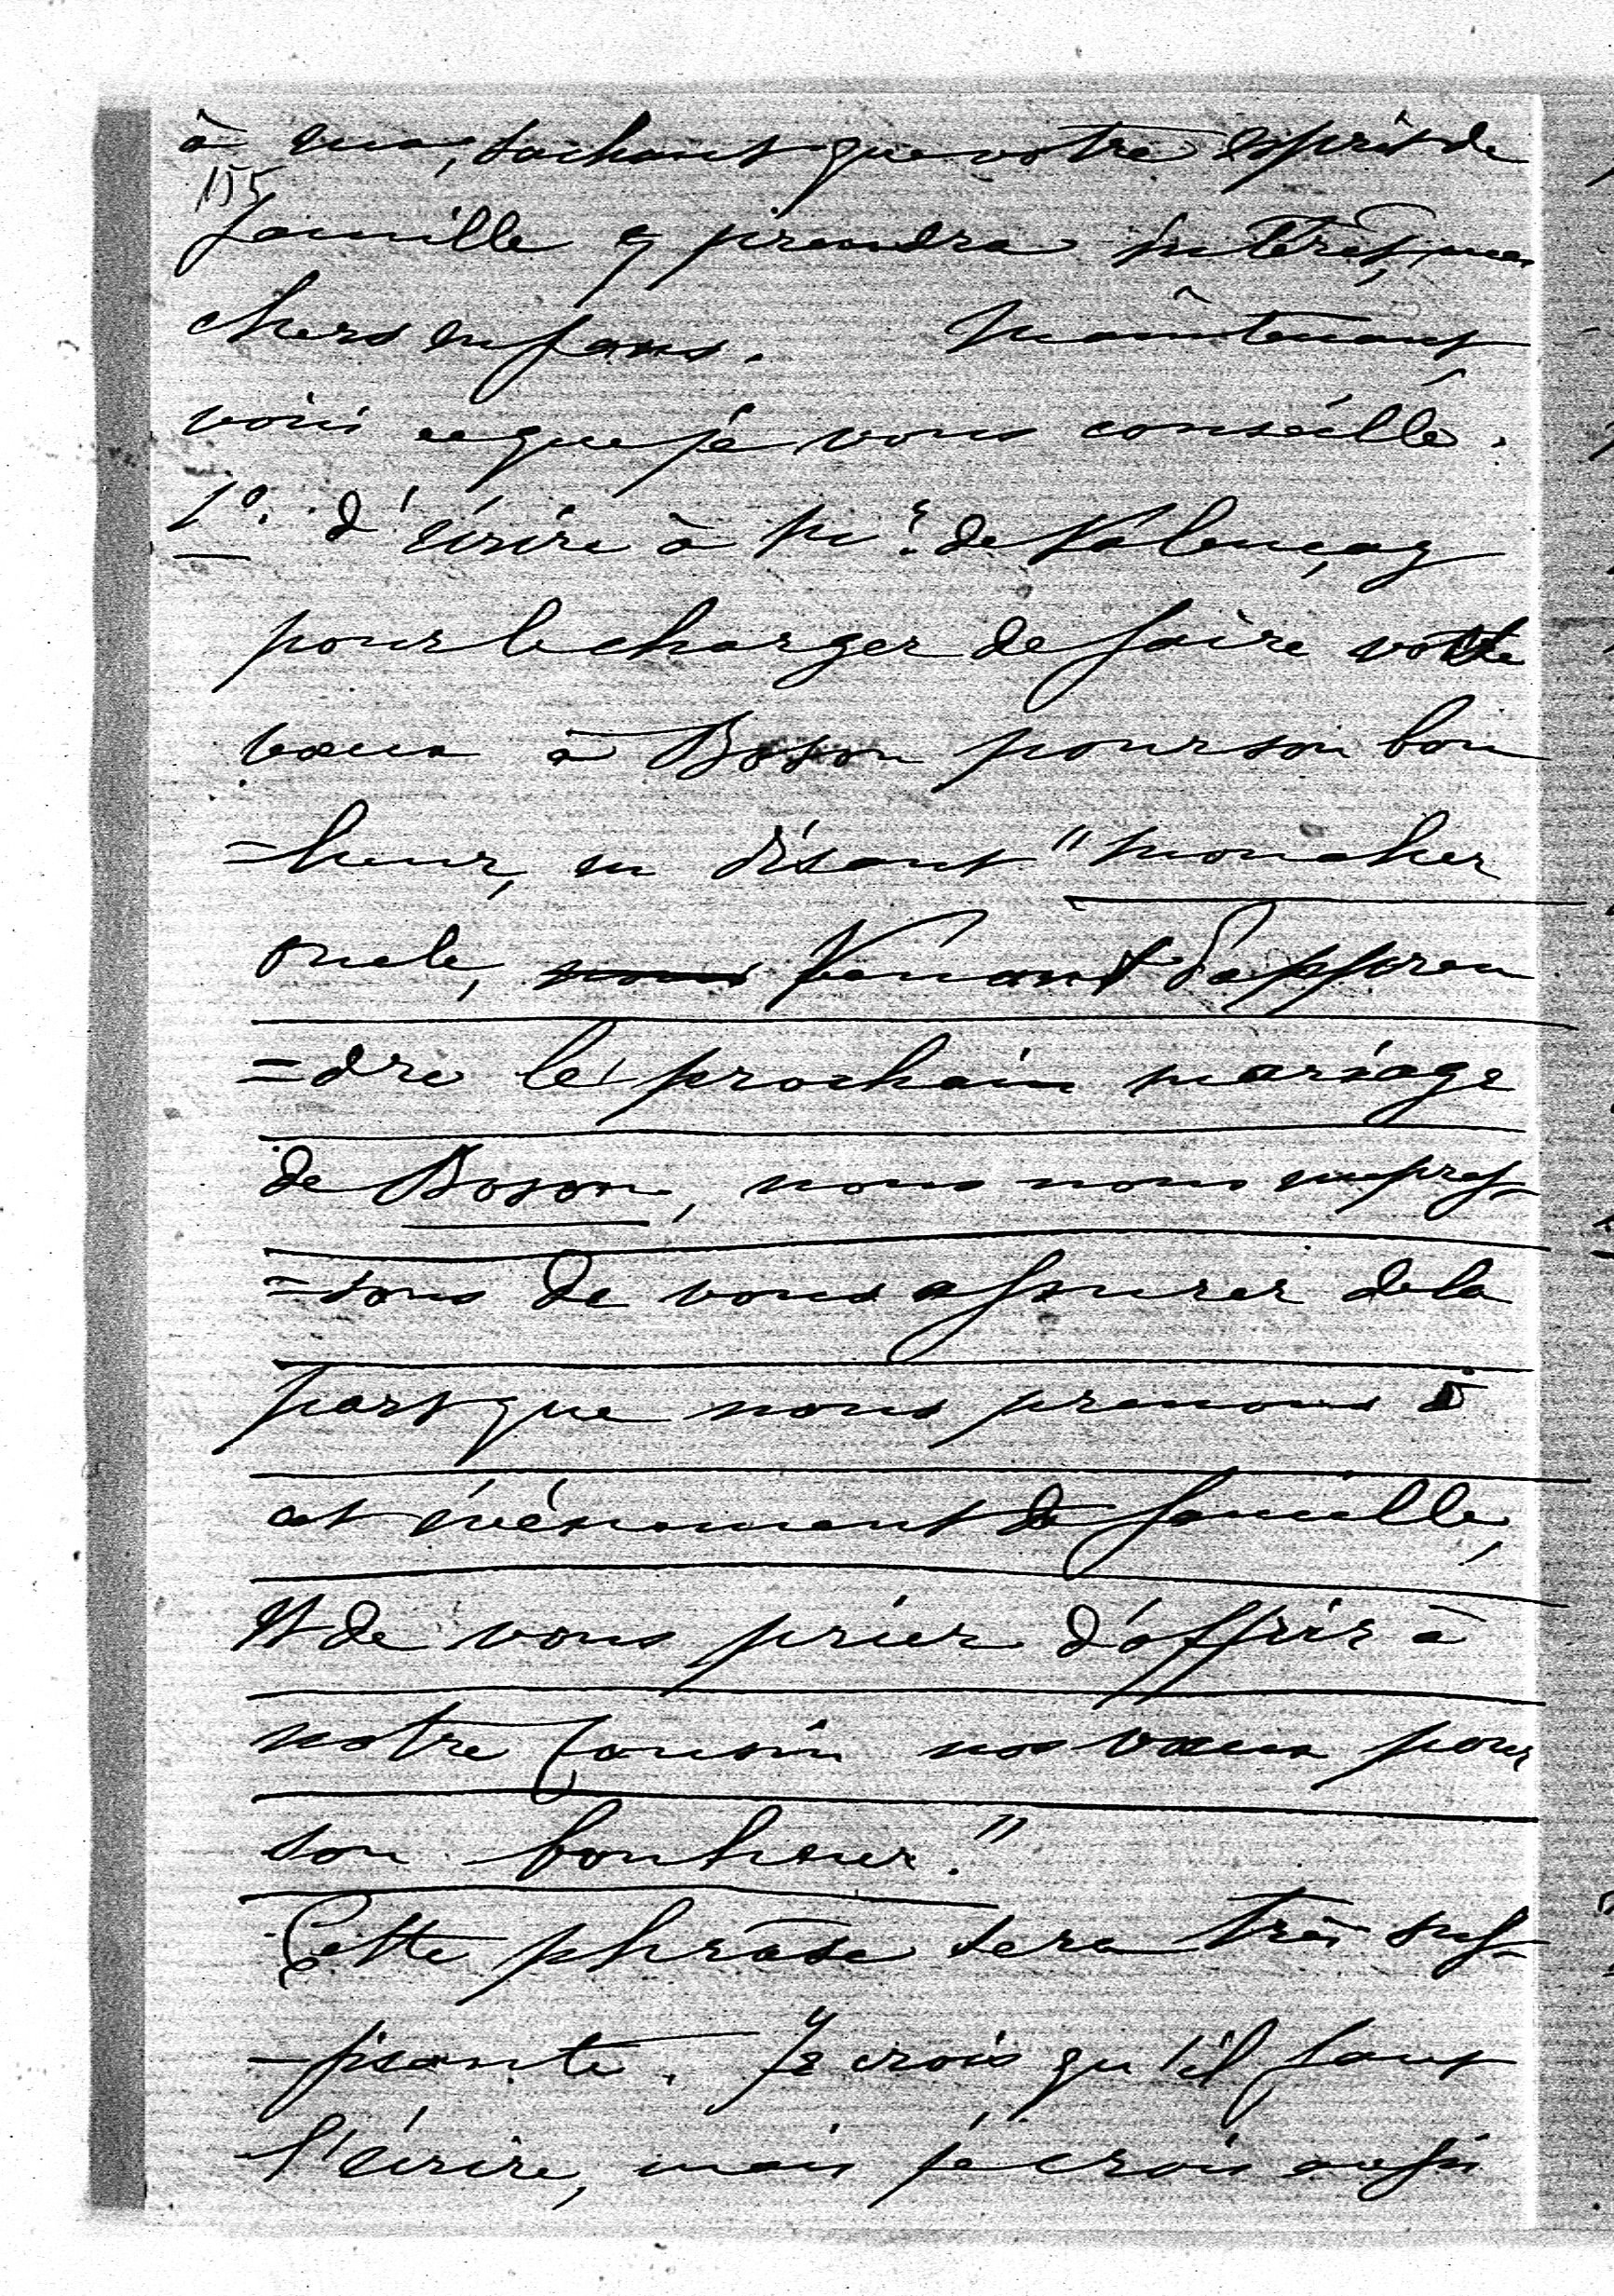 à eux, sachant que votre esprit de
155
famille y prendra intérêt, mes
chers enfans. Maintenant
voici ce que je vous conseille.
1º. d'écrire à Mr. de Valençay
pour le charger de faire votre
vœux à Boson pour son bon
=heur, en disant "mon cher
oncle, nous Venant d'appren
=dre le prochain mariage
de Boson, nous nous empres-
=sons de vous assurer de la
part que nous prenons à
cet événement de famille,
et de vous prier d'offrir à
notre Cousin nos vœux pour
son bonheur."
Cette phrase sera très suf-
-fisante. Je crois qu'il faut
l'écrire, mais je crois aussi